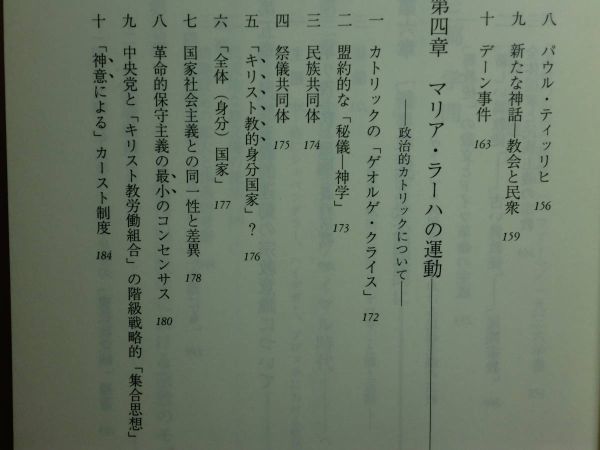 八 パウル・ティッリヒ 156
九 新たな神話―教会と民衆 159
十 デーン事件 163
第四章 マリア・ラーハの運動
――政治的カトリックについて――
一 カトリックの「ゲオルゲ・クライス」 172
二 盟約的な「秘儀―神学」 173
三 民族共同体 174
四 祭儀共同体 175
五 「キリスト教的身分国家」? 176
六 「全体(身分)国家」 177
七 国家社会主義との同一性と差異 178
八 革命的保守主義の最小のコンセンサス 180
九 中央党と「キリスト教労働組合」の階級戦略的「集合思想」
十 「神意による」カースト制度 184